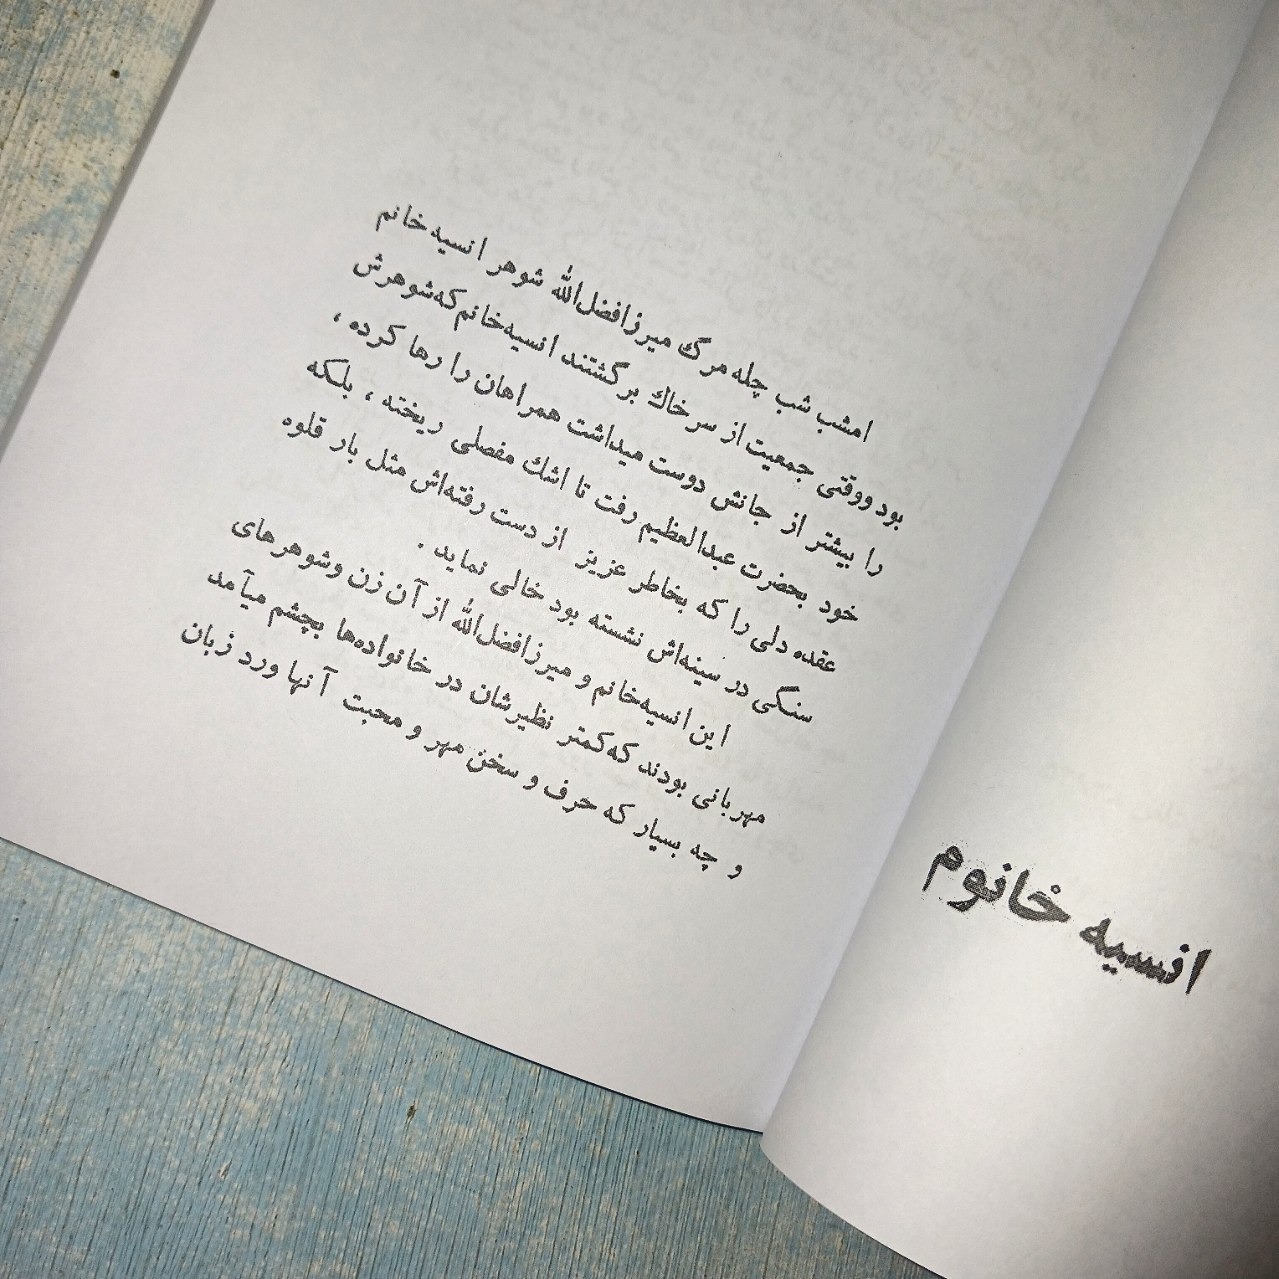 انسیه خانوم
امشب شب چله مرگ میرزافضل‌الله شوهر انسیه‌خانم
بود ووقتی جمعیت از سرخاك برگشتند انسیه‌خانم که‌شوهرش
را بیشتر از جانش دوست میداشت همراهان را رها کرده ،
خود بحضرت عبدالعظیم رفت تا اشك مفصلی ریخته ، بلکه
عقده دلی را که بخاطر عزیز از دست رفته‌اش مثل بار قلوه
سنگی در سینه‌اش نشسته بود خالی نماید .
این انسیه‌خانم و میرزافضل‌الله از آن زن وشوهرهای
مهربانی بودند که‌کمتر نظیرشان در خانواده‌ها بچشم میآمد
و چه بسیار که حرف و سخن مهر و محبت آنها ورد زبان